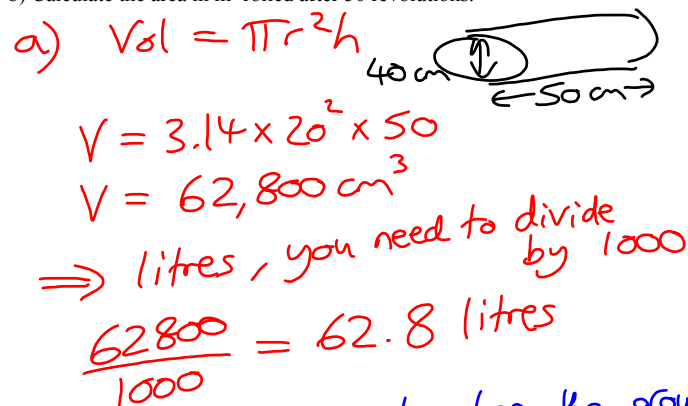 a) Vol = πr²h
40 cm
50 cm
V = 3.14 x 20² x 50
V = 62,800 cm³
⇒ litres, you need to divide
by 1000
62800
1000
= 62.8 litres